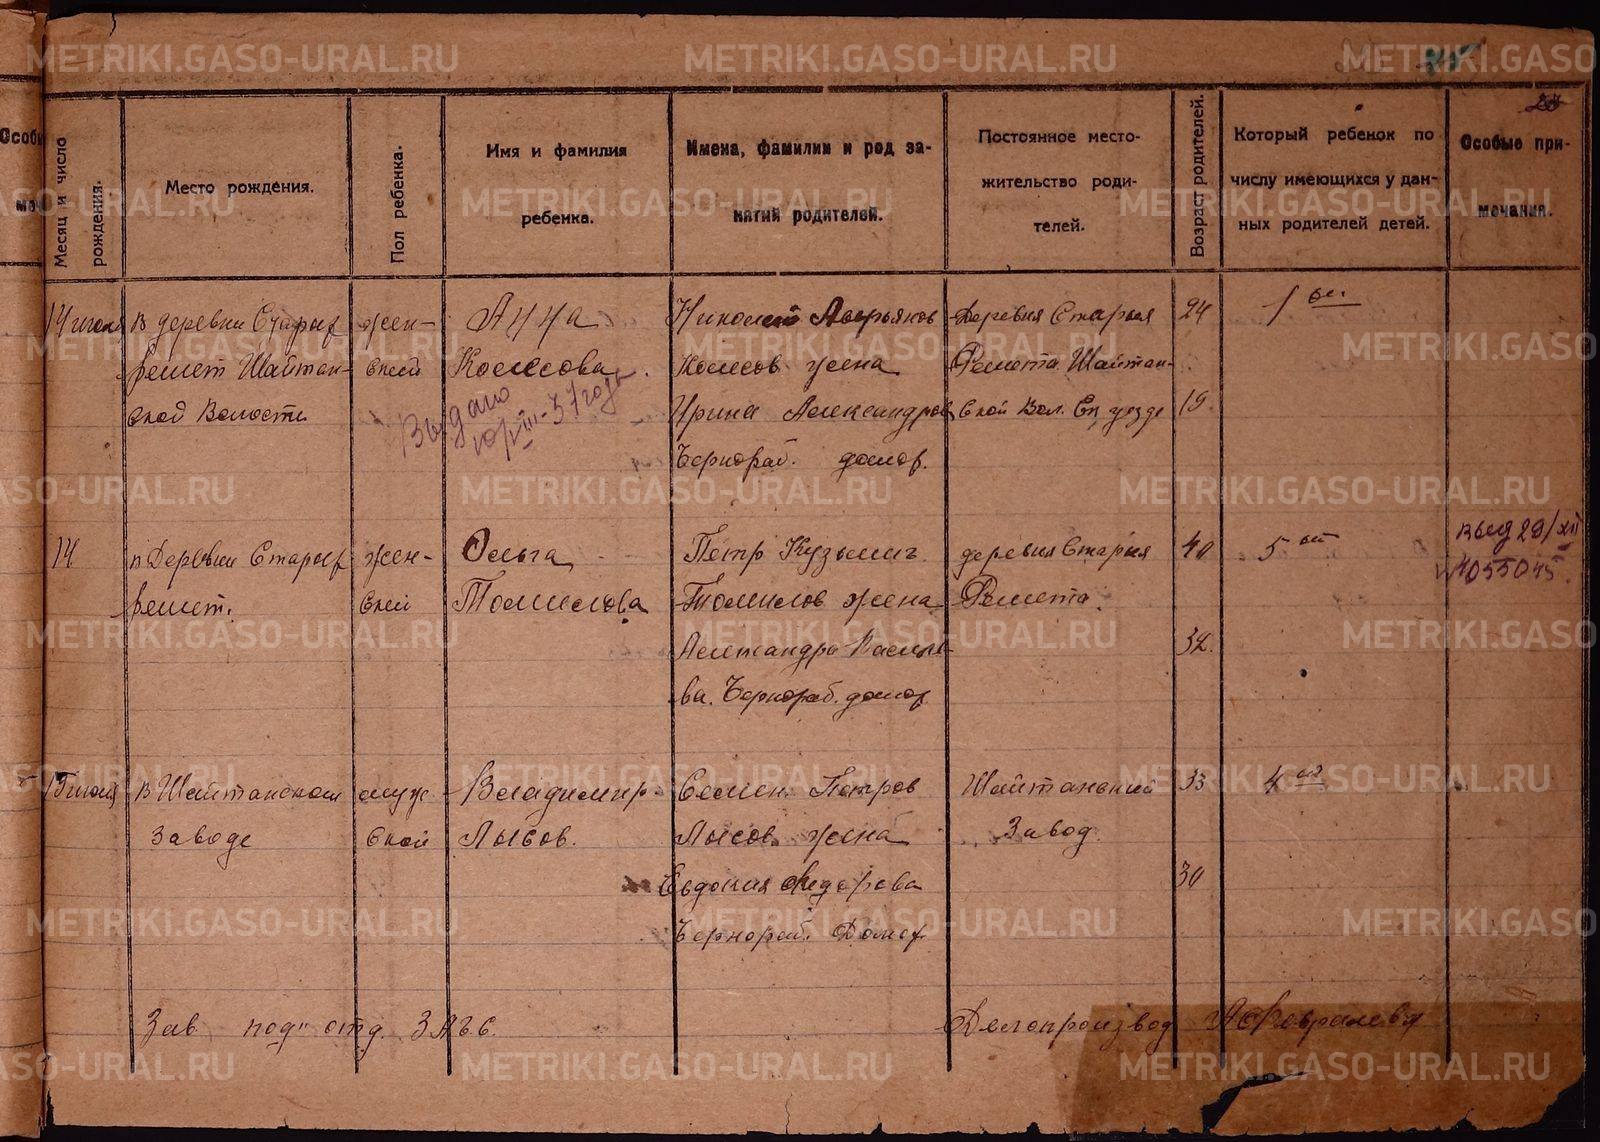 Особы
меч
Месяц и число рождения.
Место рождения.
Пол ребенка.
Имя и фамилия
ребенка.
Имена, фамилии и род за-
нятий родителей.
Постоянное место-
жительство роди-
телей.
Возраст родителей.
Который ребенок по
числу имеющихся у дан-
ных родителей детей.
Особые при-
мечания.
14 июля
в деревни Старых
решет Шайтан-
ской Волости
жен-
ской
Анна
Колесова.
Выдано
10/III-37 года
Николай Аверьянов
Колесов жена
Ирина Александров
Чернораб. домох.
Деревня Старыя
Решета Шайтан-
ской Вол. Ек уезде
24
19
1 ый
14
в Деревни Старых
решет.
жен-
ской
Ольга
Томилова
Петр Кузьмич
Томилов жена
Александра Василье-
ва. Чернораб. домох
деревня Старыя
Решета.
40
32.
5 ый
выд 29/XII
№055045
15 июля
в Шайтанском
Заводе
муж
ской
Владимир
Лысов.
Семен Петров
Лысов жена
Евдокия Федорова
Чернораб. Домох
Шайтанский
Завод
33
30
4 ый
Зав под" отд. ЗАГС.
Делопроизвод А Февралева
METRIKI.GASO-URAL.RU